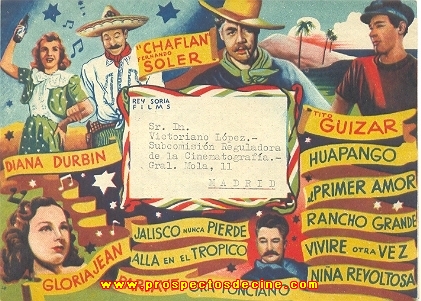 "CHAFLAN"
FERNANDO
SOLER
REY SORIA
FILMS
Sr. Dn.
Victoriano López.-
Subcomisión Reguladora
de la Cinematografía.-
Gral. Mola, 11
MADRID
TITO
GUIZAR
DIANA DURBIN
HUAPANGO
PRIMER AMOR
RANCHO GRANDE
VIVIRE OTRA VEZ
NIÑA REVOLTOSA
JALISCO NUNCA PIERDE
ALLA EN EL TROPICO
GLORIA JEAN
PONCIANO
www.prospectosdecine.com